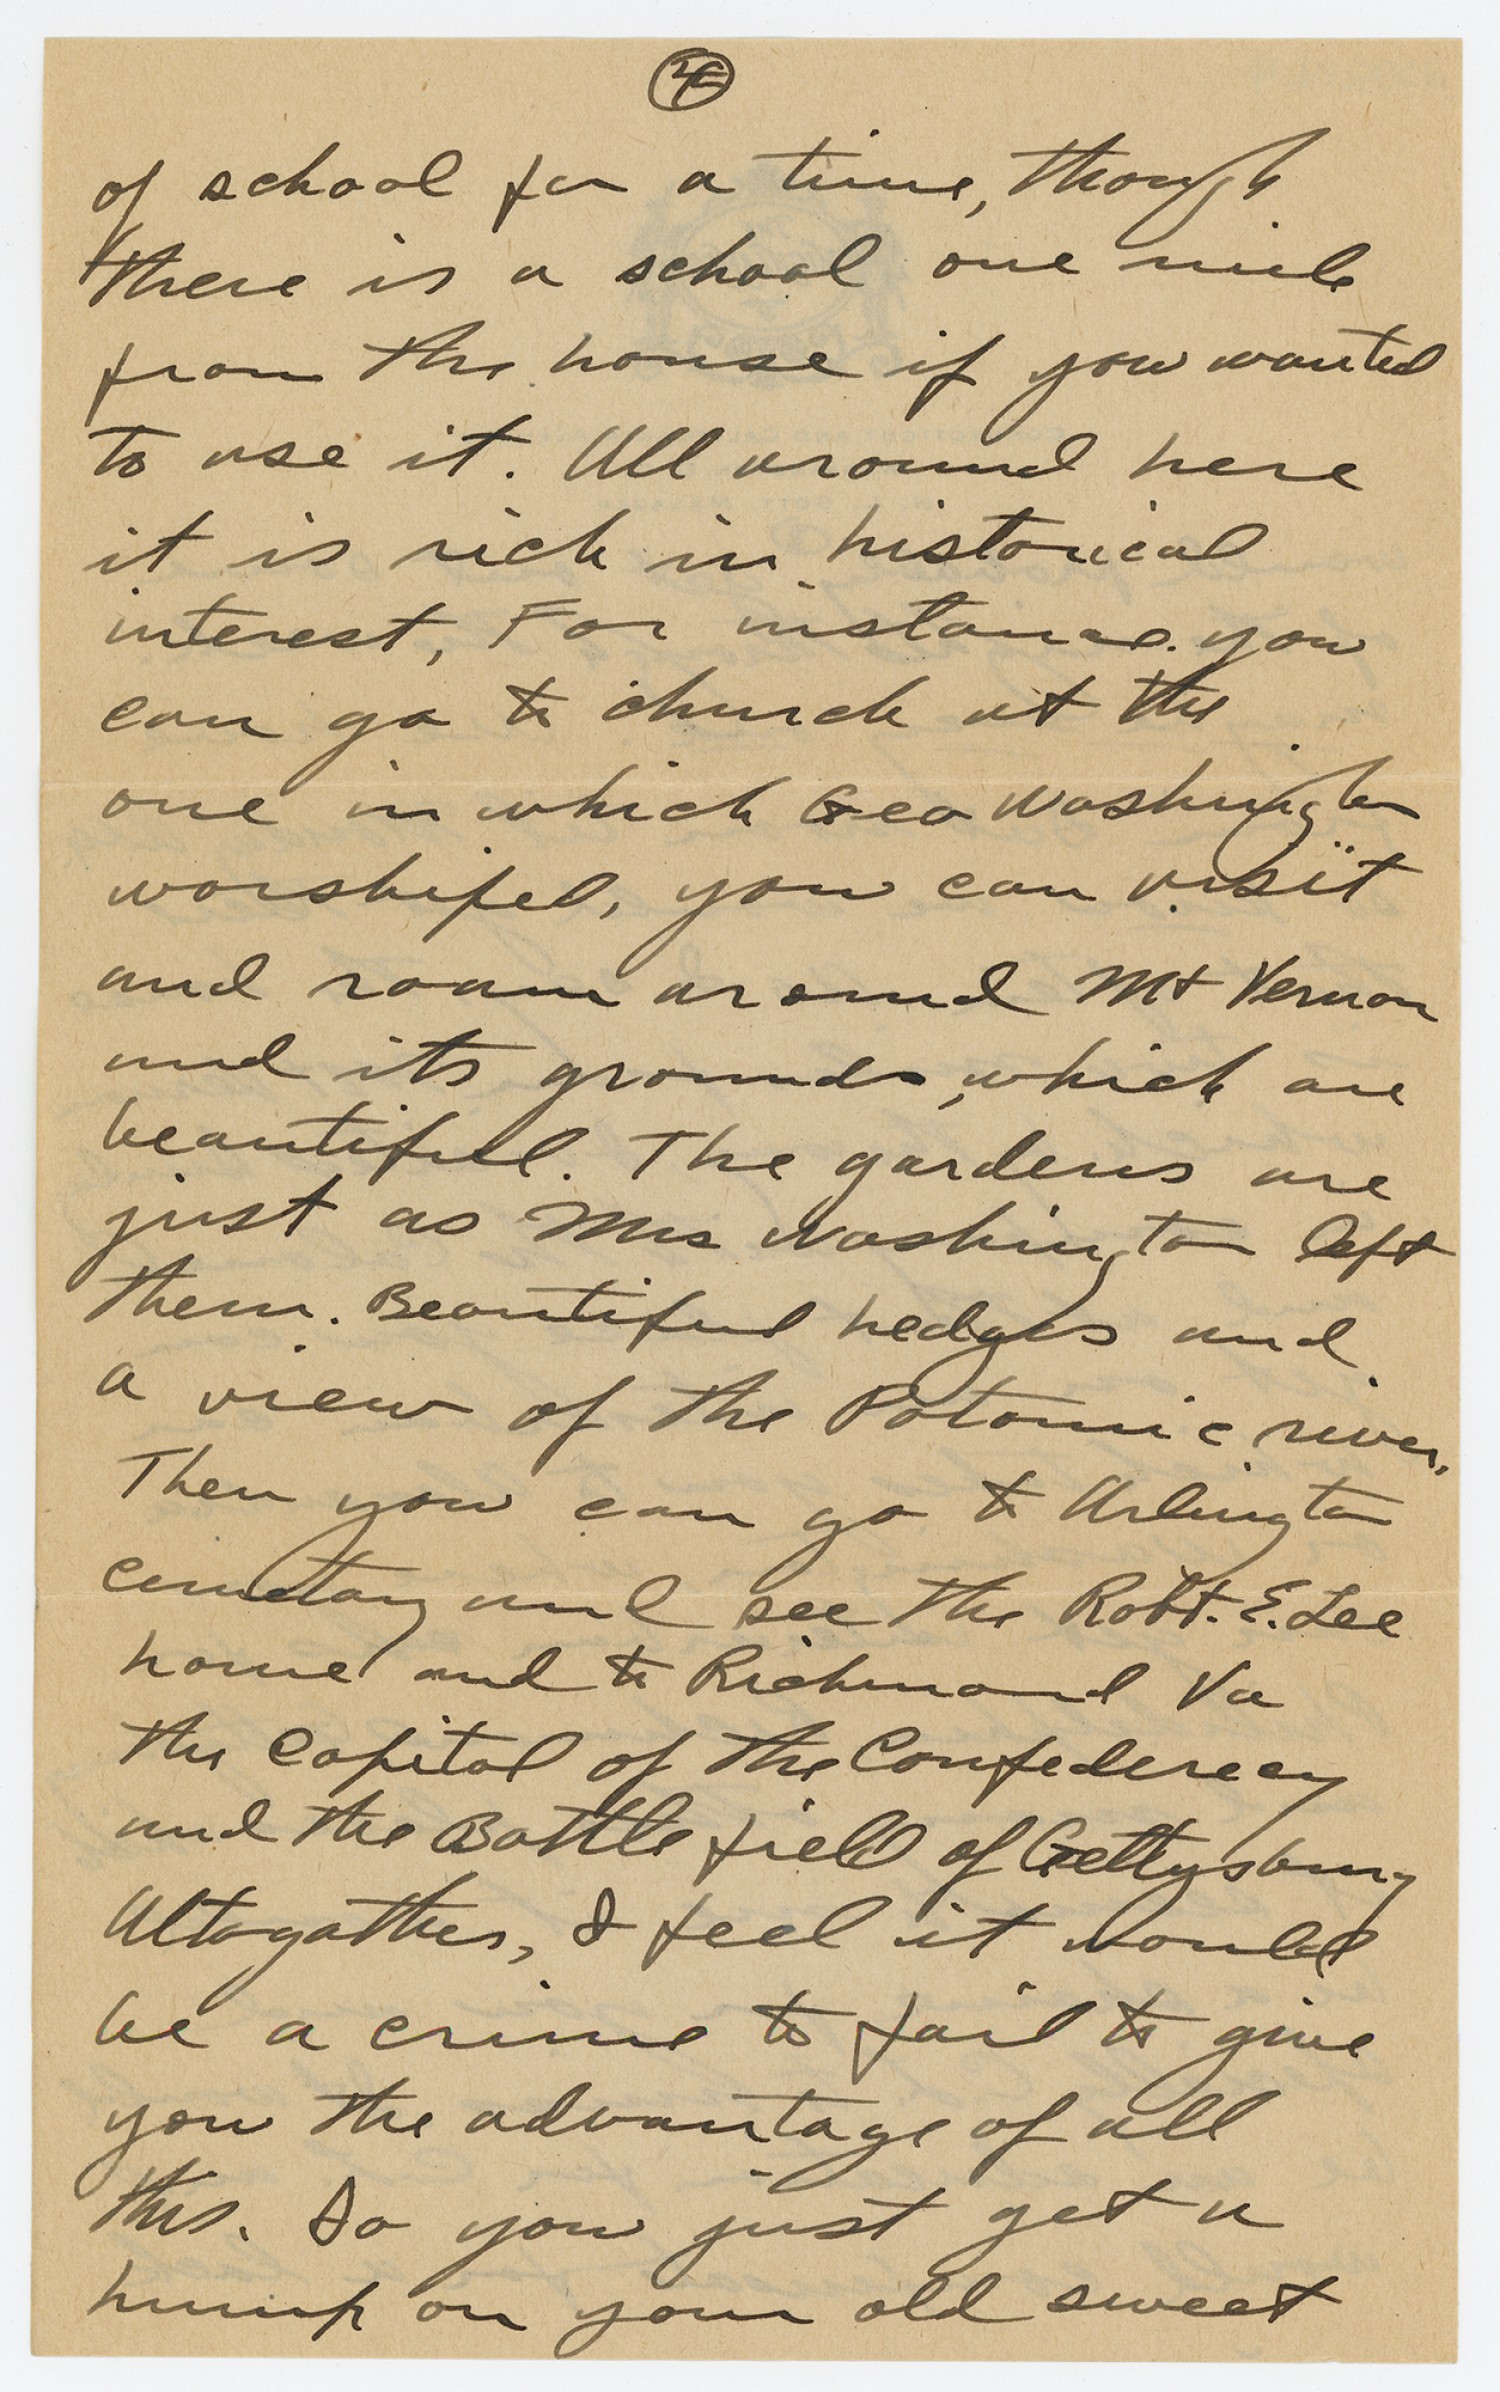 4
of school for a time, though
there is a school one mile
from the house if you wanted
to use it. All around here
it is rich in historical
interest, For instance. you
can go to church at the
one in which Geo Washington
worshiped, you can visit
and roam around Mt Vernon
and its grounds, which are
beautiful. The gardens are
just as Mrs Washington left
them. Beautiful hedges and
a view of the Potomic river.
Then you can go to Arlington
cemetary and see the Robt. E. Lee
home and to Richmond Va
the Capitol of the Confederecy
and the Battle field of Gettysburg
Altogather, I feel it would
be a crime to fail to give
you the advantage of all
this. So you just get a
hump on your old sweet